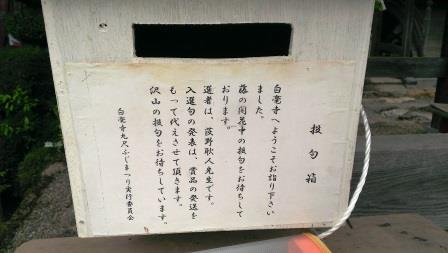 投句箱
白毫寺へようこそお詣り下さい
ました。
藤の開花中の投句をお待ちして
おります。
選者は、荻野耿人先生です。
入選句の発表は、賞品の発送を
もって代えさせて頂きます。
沢山の投句をお待ちしています。
白毫寺九尺ふじまつり実行委員会